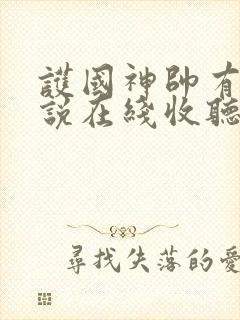 護國神帥有
說在綫收聽
尋找失落的愛